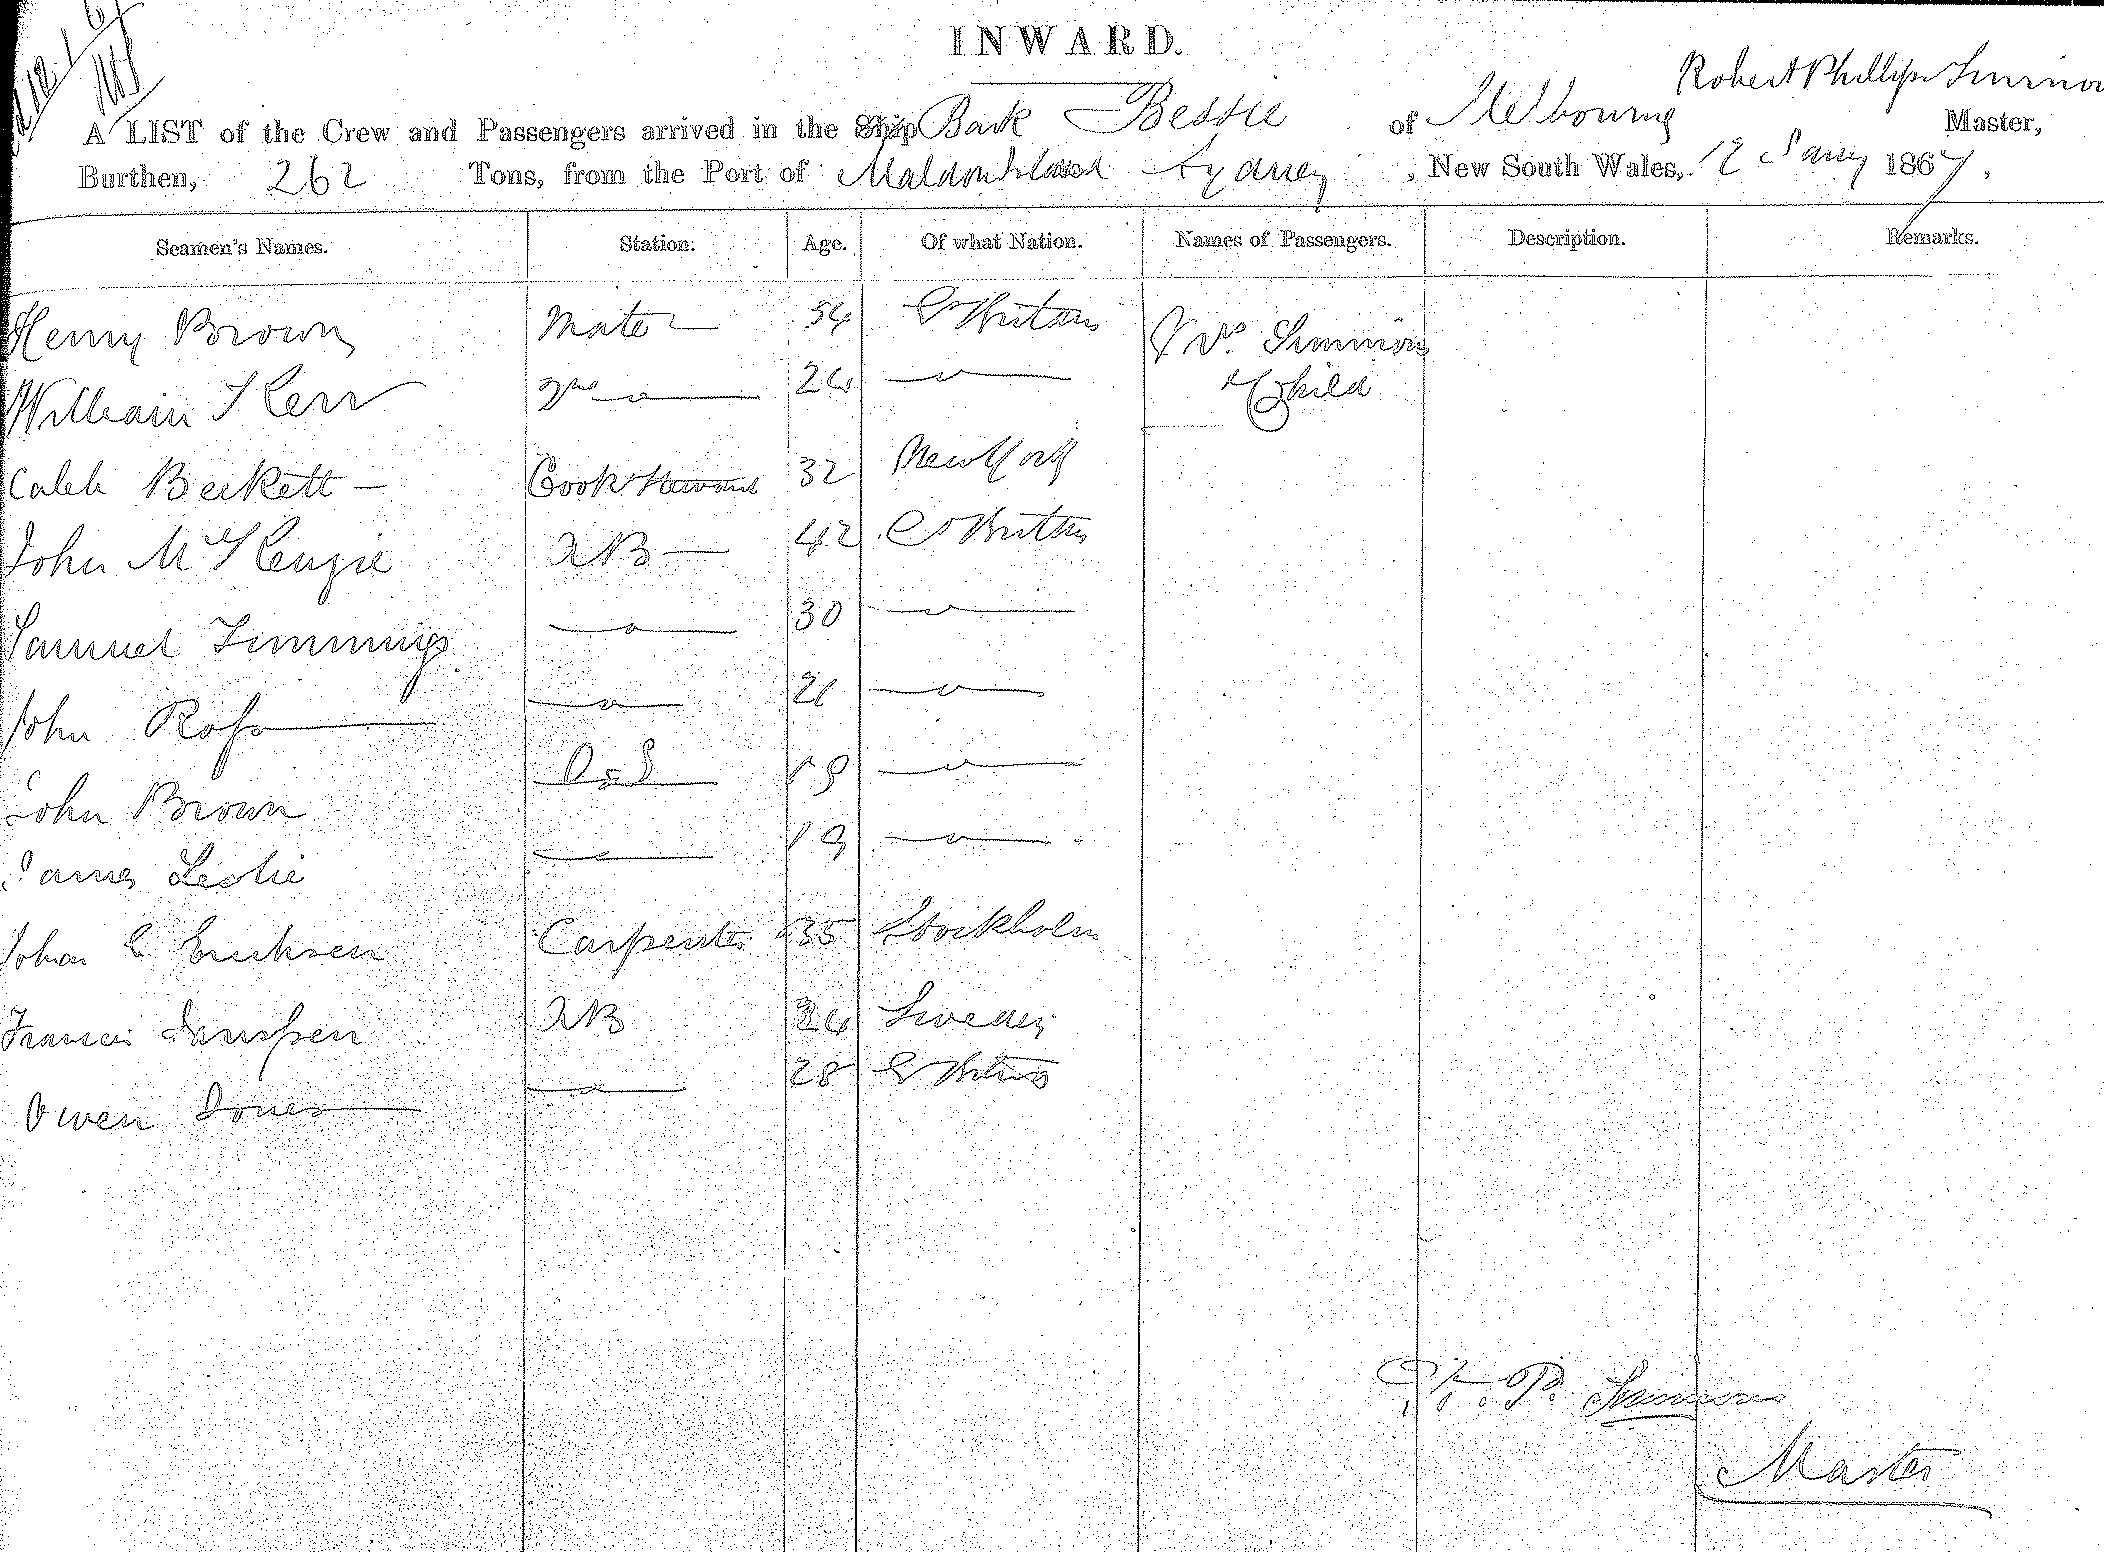 INWARD.
Robert Phillips Simmons
A LIST of the Crew and Passengers arrived in the Ship Bark Bessie of Melbourne Master,
Burthen, 262 Tons, from the Port of Maldon Island Sydney, New South Wales, 12 Jany 1867.
Seamen's Names. Station. Age. Of what Nation. Names of Passengers. Description. Remarks.
Henry Brown Mate 54 Gt Britain Mrs. Simmons
William Kerr 2nd do 24 do & Child
Caleb Beckett Cook & Steward 32 New York
John McKenzie AB 42 Gt Britain
Samuel Timmings do 30 do
John Ross do 21 do
John Brown O.S 18 do
James Leslie do 19 do
Johan E Ericksen Carpenter 35 Stockholm
Francis Janssen AB 24 Sweden
Owen Jones do 28 Gt Britain
R. P. Simmons
Master